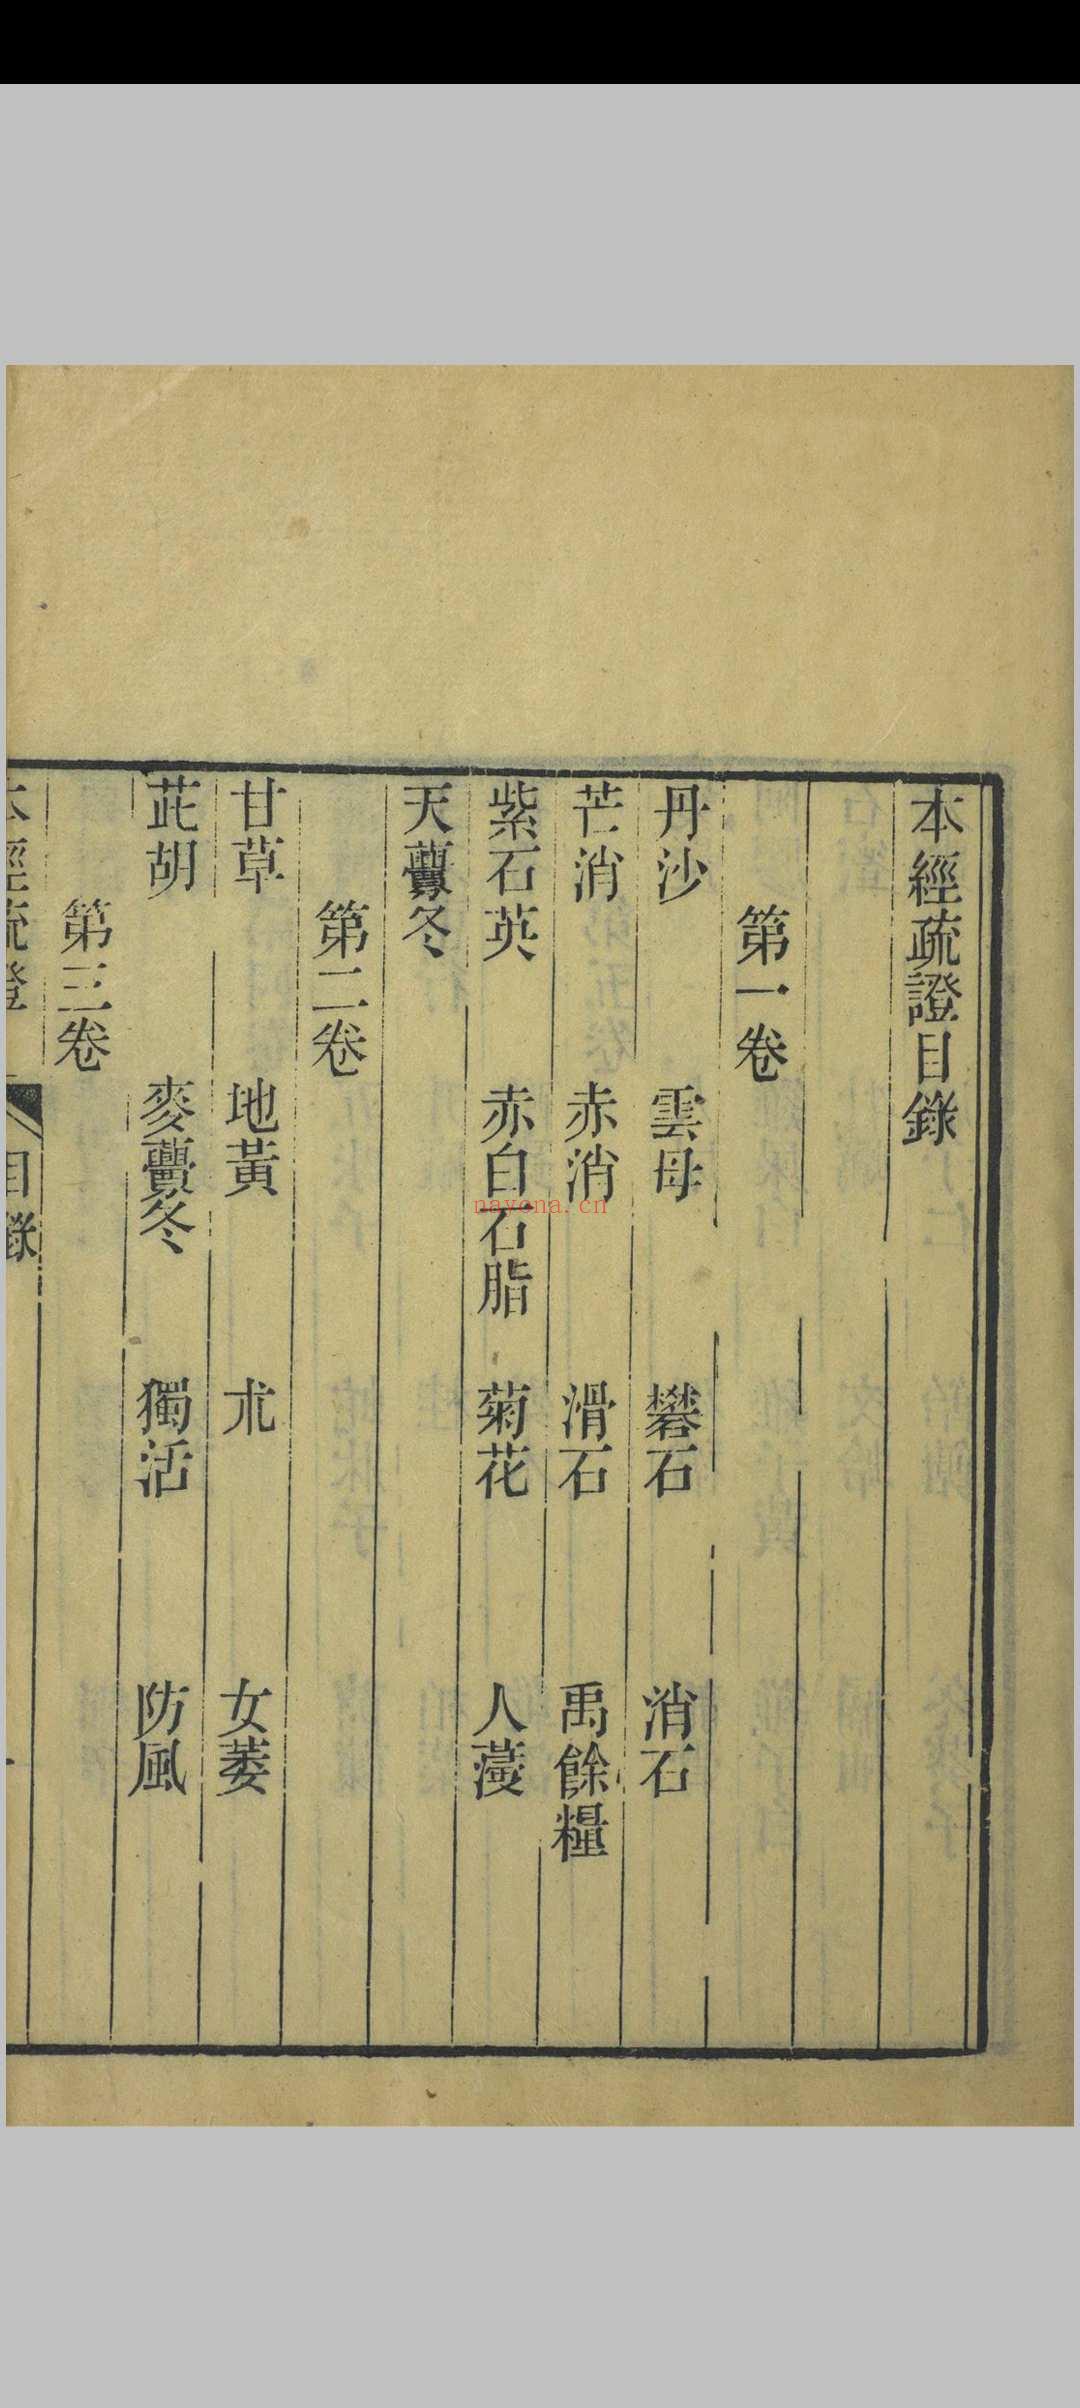 本經疏證目錄
第一卷
丹沙 雲母 礬石 消石
芒消 赤消 滑石 禹餘糧
紫石英 赤白石脂 菊花 人薓
天虋冬
第二卷
甘草 地黃 朮 女萎
茈胡 麥虋冬 獨活 防風
第三卷
本經疏證 目錄
nayona.cn